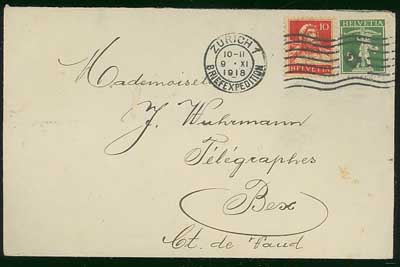 ZÜRICH 1
10-11
9 · XI
1918
BRIEFEXPEDITION
10
HELVETIA
HELVETIA
Mademoiselle
J. Wuhrmann
Télégraphes
Bex
Ct. de Vaud